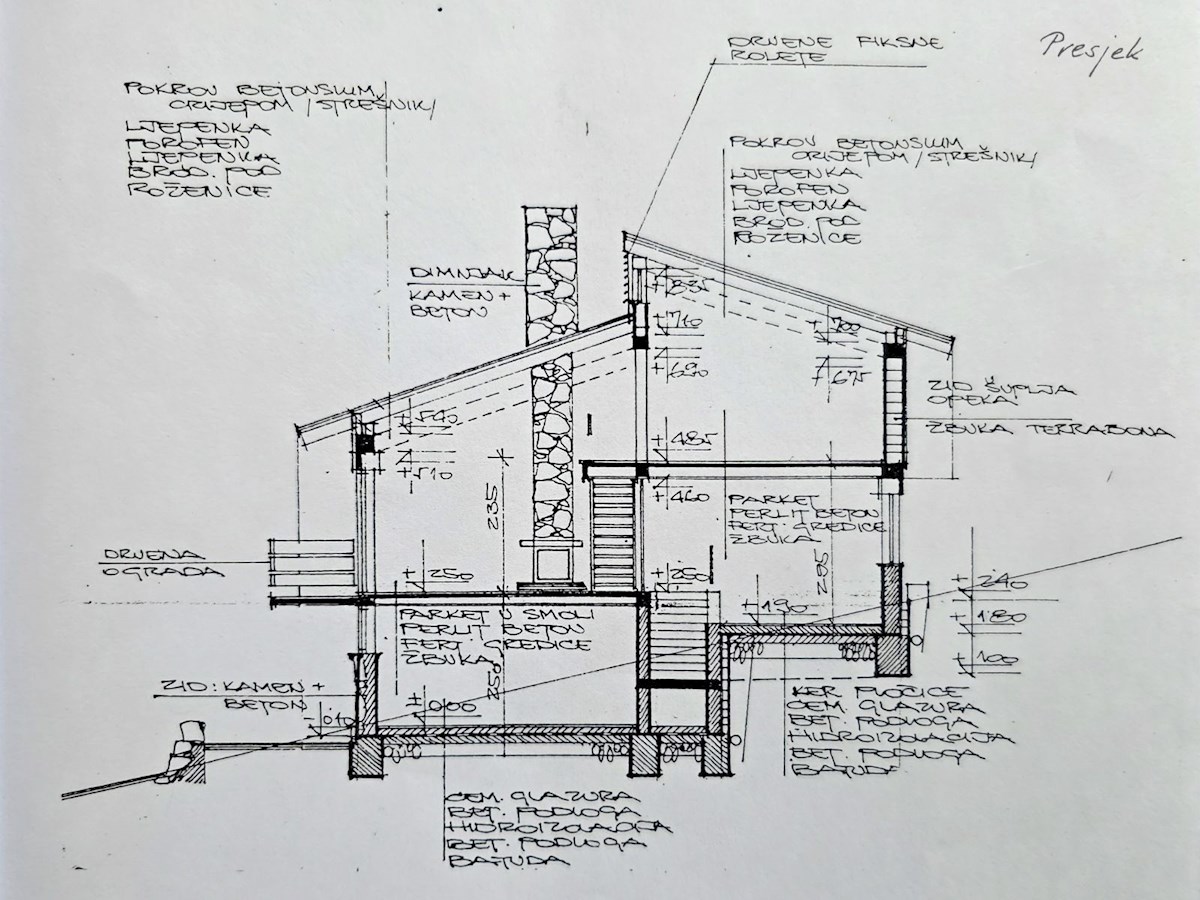 Presjek
DRVENE FIKSNE
ROLETE
POKROV BETONSKIM
CRIJEPOM /STREŠNIK/
LJEPENKA
POROFEN
LJEPENKA
BROD. POD
ROŽENICE
POKROV BETONSKIM
CRIJEPOM /STREŠNIK/
LJEPENKA
POROFEN
LJEPENKA
BROD. POD
ROŽENICE
DIMNJAK
KAMEN +
BETON
+835
+710
+690
+700
+675
+540
+510
+485
+460
ZID ŠUPLJA
OPEKA
ŽBUKA TERRABONA
235
PARKET
PERLIT BETON
FERT. GREDICE
ŽBUKA
DRVENA
OGRADA
+250
+250
+190
+240
+180
+100
PARKET U SMOLI
PERLIT BETON
FERT. GREDICE
ŽBUKA
250
ZID: KAMEN +
BETON
±000
KER. PLOČICE
CEM. GLAZURA
BET. PODLOGA
HIDROIZOLACIJA
BET. PODLOGA
BATUDA
CEM. GLAZURA
BET. PODLOGA
HIDROIZOLACIJA
BET. PODLOGA
BATUDA